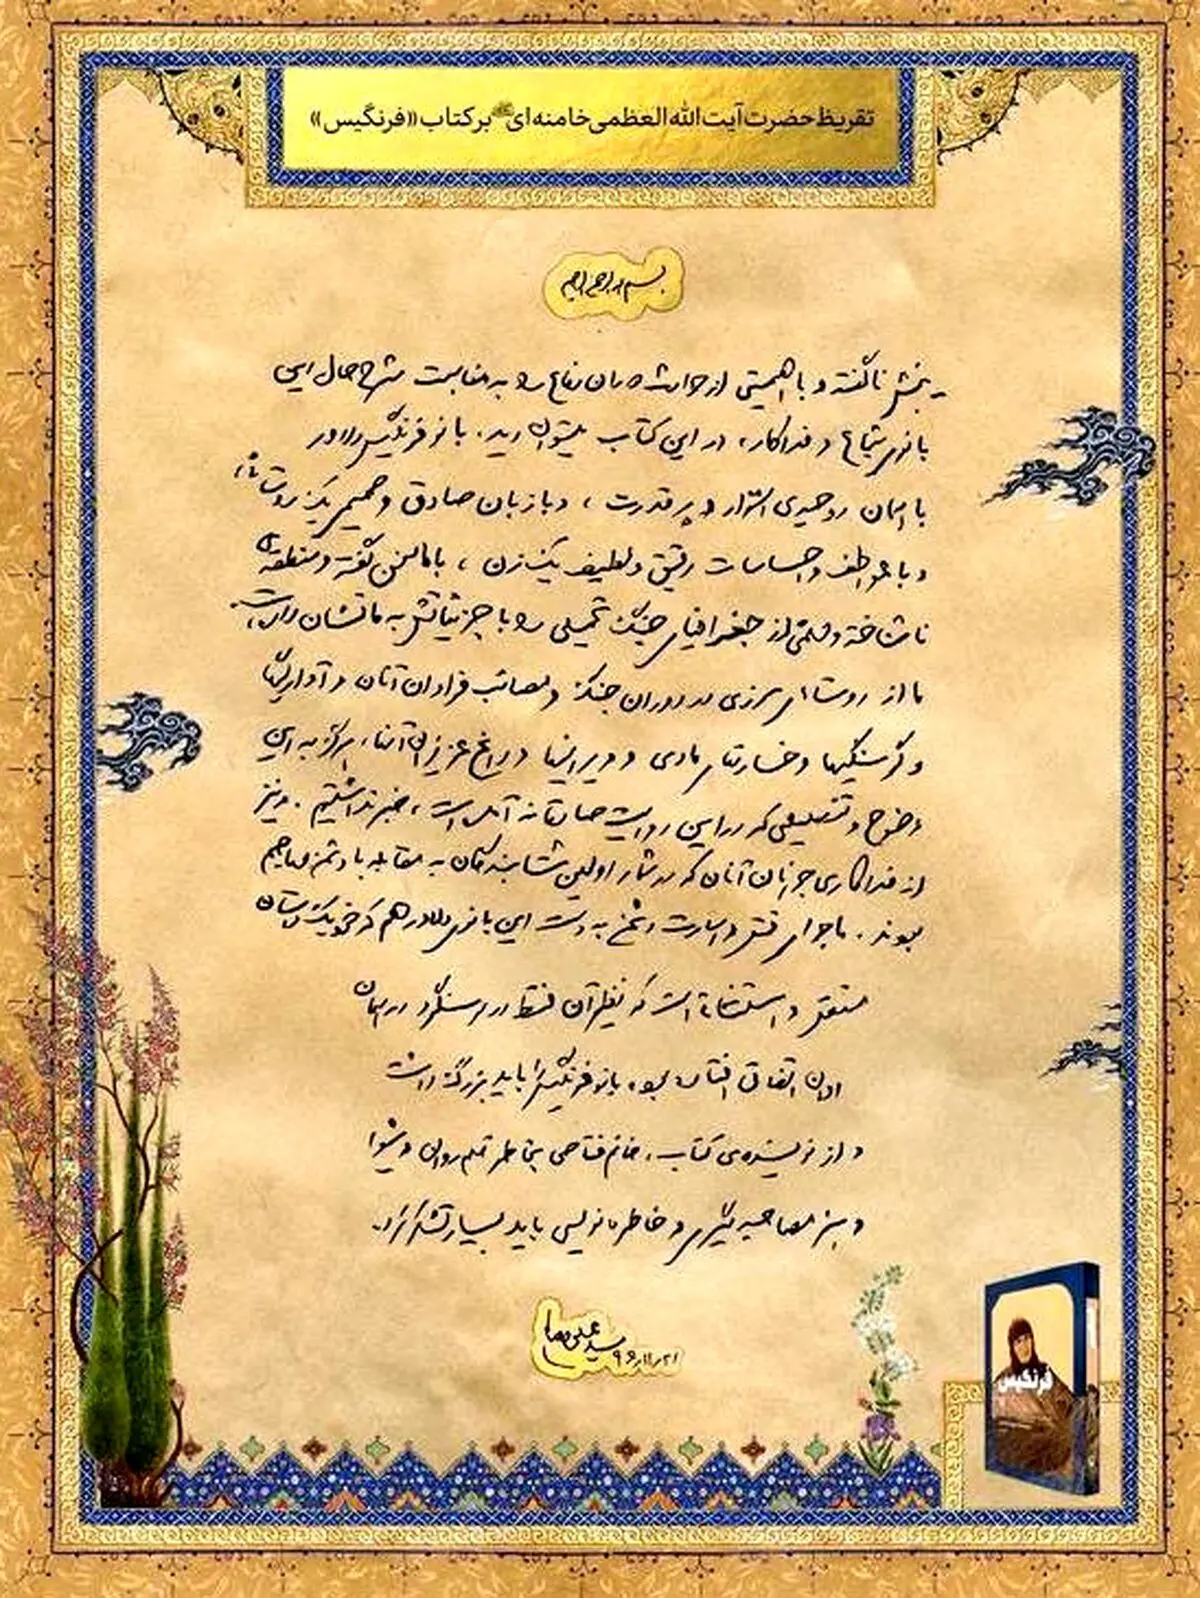 تقریظ حضرت آیت الله العظمی خامنه‌ای بر کتاب «فرنگیس»
بسم الله الرحمن الرحیم
ـ بخش ناگفته و با اهمیتی از حوادث دوران دفاع را به مناسبت شرح حال این
بانوی شجاع و فداکار، در این کتاب میتوان دید. بانو فرنگیس دلاور
با همان روحیه‌ی استوار و پرقدرت، و با زبان صادق و صمیمی یک روستائی،
و با عواطف و احساسات رقیق و لطیف یک زن، با ما سخن گفته و منطقه‌ی
ناشناخته و مهمی از جغرافیای جنگ تحمیلی را با جزئیاتش به ما نشان داده است.
ما از روستاهای مرزی در دوران جنگ و مصائب فراوان آنان و آوارگیها
و گرسنگیها و خسارتهای مادی و ویرانیها و داغ عزیزان آنها، هرگز به این
وضوح و تفصیلی که در این روایت صادقانه آمده است، خبر نداشتیم. و نیز
از فداکاری جوانان آنان که در شمار اولین شتابندگان به مقابله با دشمن مهاجم
بودند. ماجرای قتل و اسارت دشمن به دست این بانوی دلاور هم که خود یک داستان
مستقل و استثنائی است که نظیر آن فقط در سوسنگرد در همان
اوان اتفاق افتاده بود. بانو فرنگیس را باید بزرگ داشت
و از نویسنده‌ی کتاب، خانم فتاحی بخاطر قلم روان و شیوا
و هنر مصاحبه‌گیری و خاطره‌نویسی باید بسیار تشکر کرد.
سید علی خامنه‌ای
۹۶/۱۱/۲۱
فرنگیس